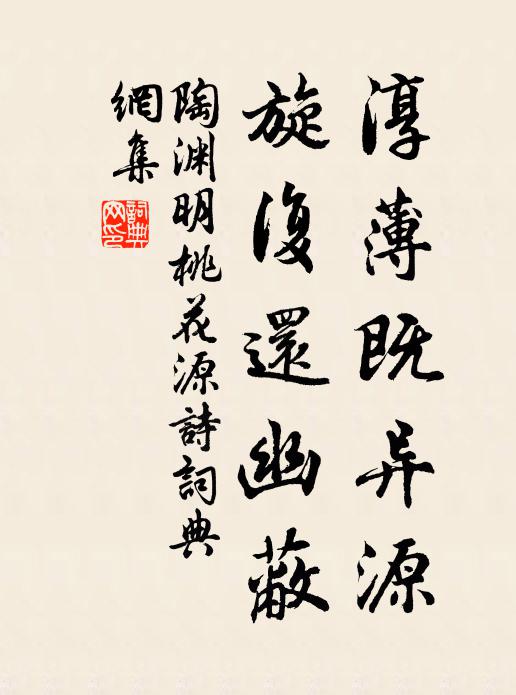 淳薄既异源
旋復還幽蔽
陶渊明桃花源詩詞典
網集
詞典网印